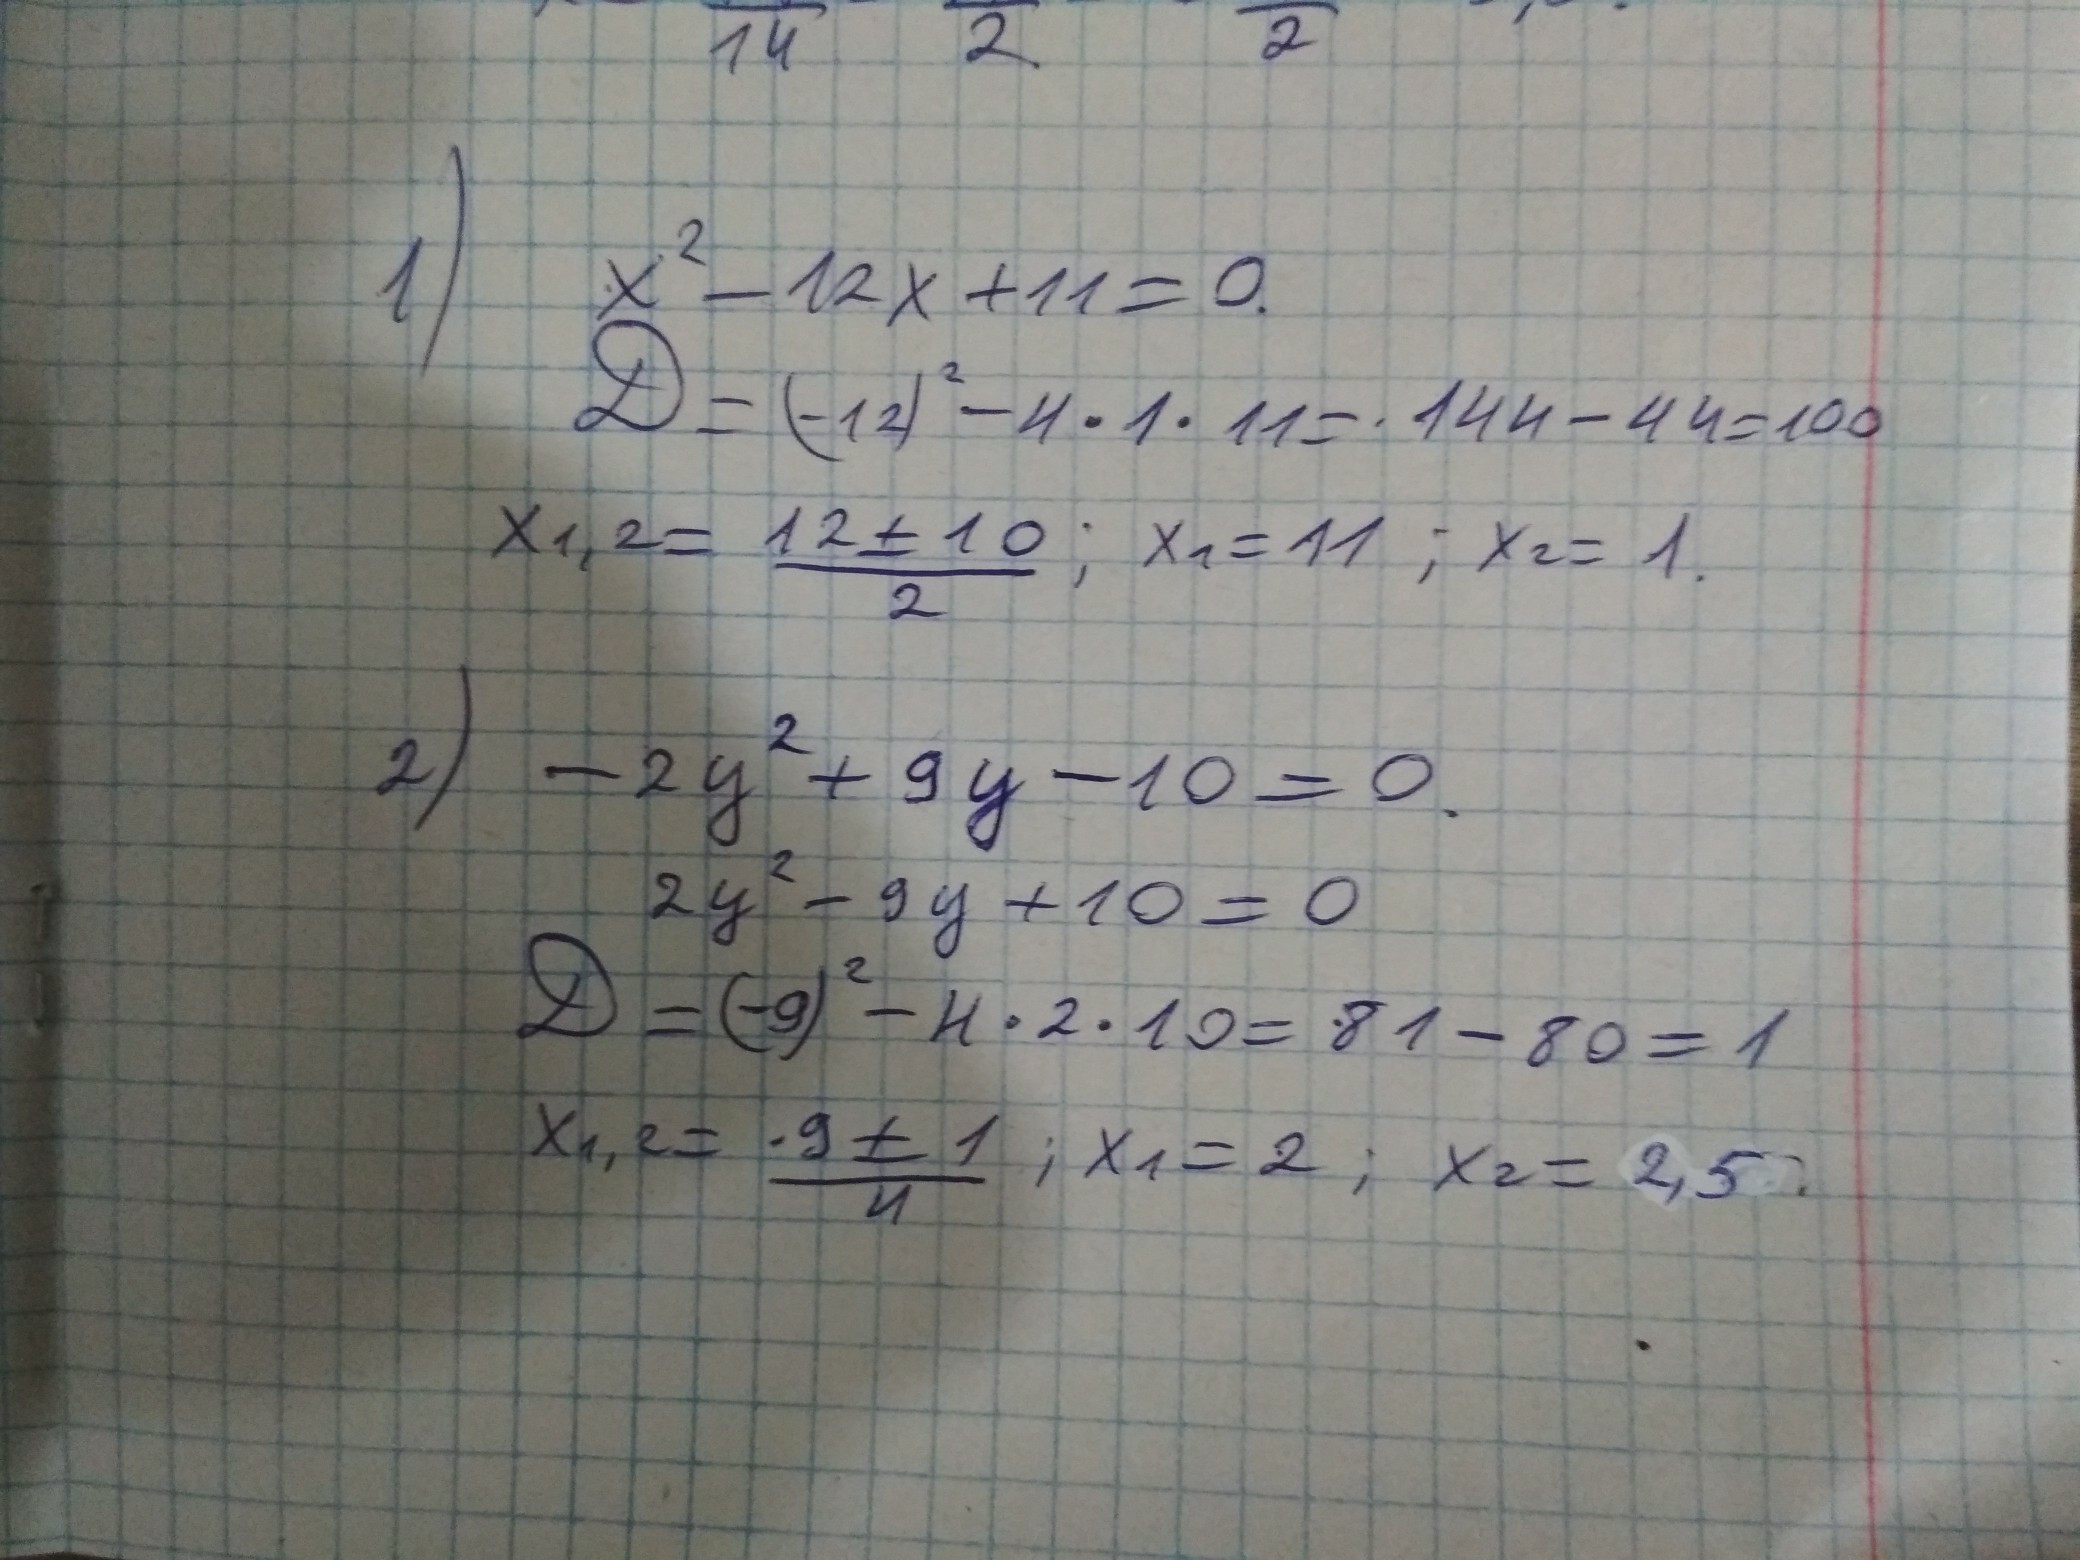 14 2 2
1) x² - 12x + 11 = 0.
D = (-12)² - 4 · 1 · 11 = 144 - 44 = 100
x1,2 = (12 ± 10)/2 ; x1 = 11 ; x2 = 1.
2) -2y² + 9y - 10 = 0.
2y² - 9y + 10 = 0
D = (-9)² - 4 · 2 · 10 = 81 - 80 = 1
x1,2 = (9 ± 1)/4 ; x1 = 2 ; x2 = 2,5.